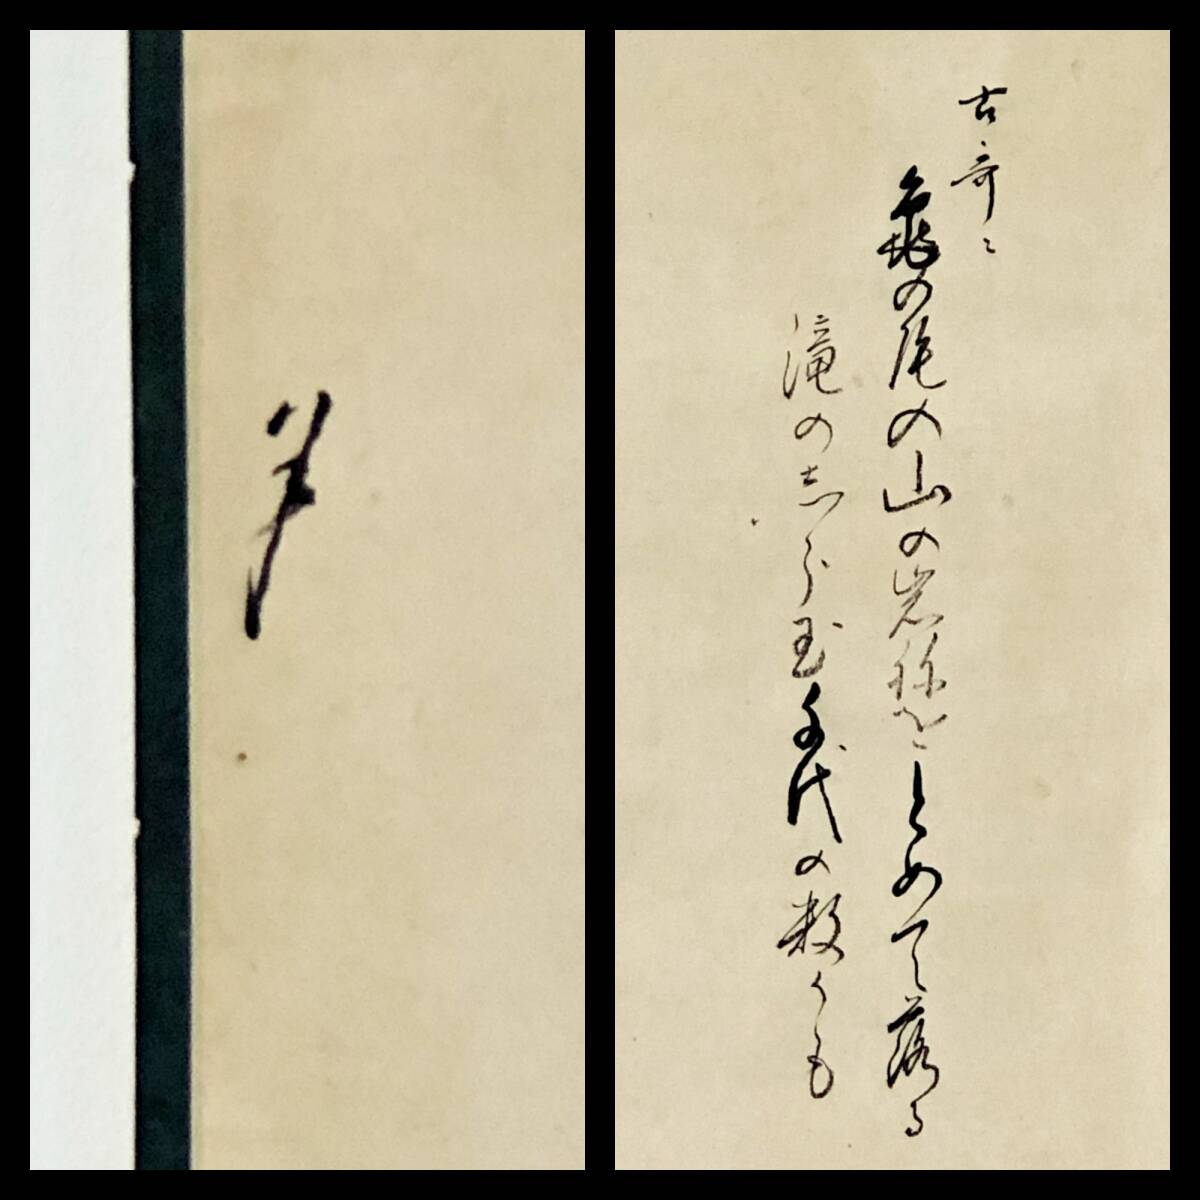 古哥ニ
亀の尾の山の岩祢をとめて落る
滝のしら玉千代の数かも